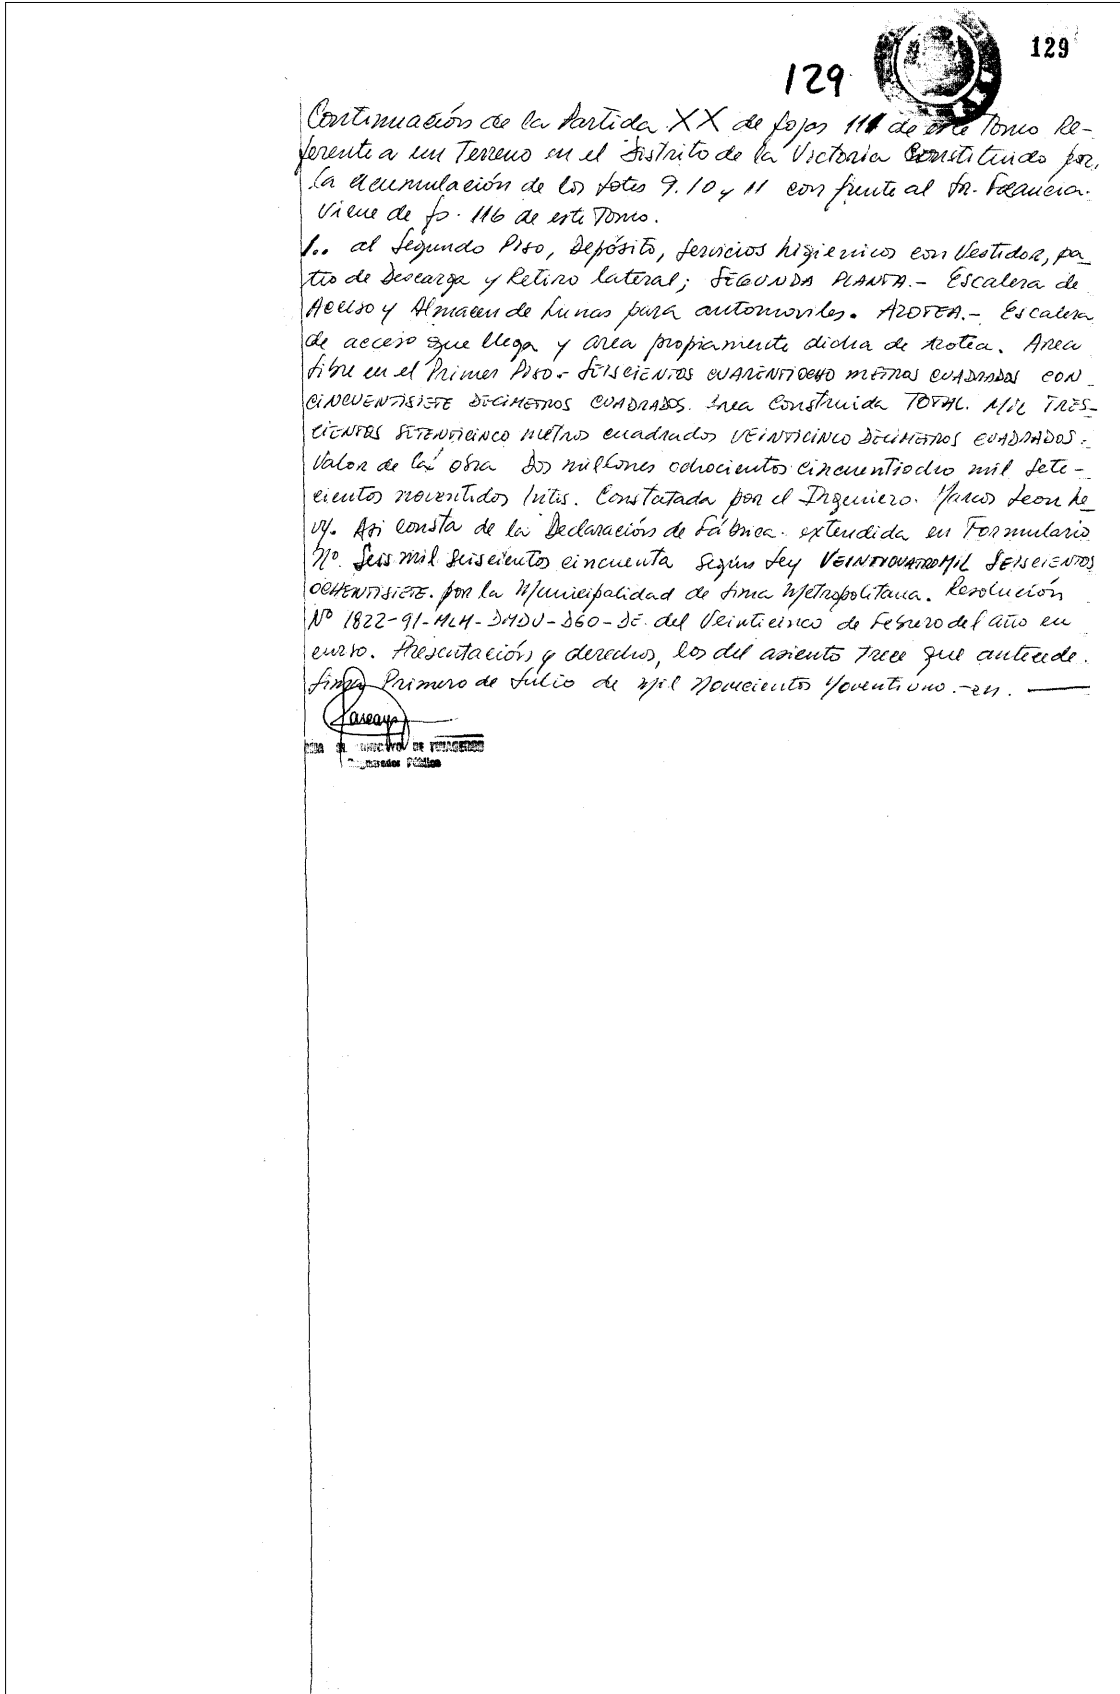 129
129
Continuación de la Partida XX de fojas 111 de este Tomo Re-
ferente a un Terreno en el Distrito de la Victoria Constituido por
la acumulación de los Lotes 9. 10 y 11 con frente al Jr.
Viene de fs. 116 de este Tomo.
1.. al Segundo Piso, Depósito, Servicios higienicos con Vestidor, pa-
tio de Descarga y Retiro lateral; SEGUNDA PLANTA.- Escalera de
Acceso y Almacen de Lunas para automoviles. AZOTEA.- Escalera
de acceso que llega y area propiamente dicha de azotea. Area
Libre en el Primer Piso.- SEISCIENTOS CUARENTIOCHO METROS CUADRADOS CON
CINCUENTISIETE DECIMETROS CUADRADOS. Area Construida TOTAL. MIL TRES-
CIENTOS SETENTICINCO metros cuadrados VEINTICINCO DECIMETROS CUADRADOS.-
Valor de la obra Dos millones ochocientos cincuentiocho mil Sete-
cientos noventidos Intis. Constatada por el Ingeniero. Marcos Leon
Asi consta de la Declaración de Fábrica. extendida en Formulario
No. Seis mil Seiscientos cincuenta Según Ley VEINTICUATRO MIL SEISCIENTOS
OCHENTISIETE. por la Municipalidad de Lima Metropolitana. Resolución
Nº 1822-91-MLM-DMDU-DGO-DE. del Veinticinco de Febrero del año en
curso. Presentación y derechos, los del asiento Trece que antecede.
Lima Primero de Julio de Mil Novecientos Noventiuno.-
Público